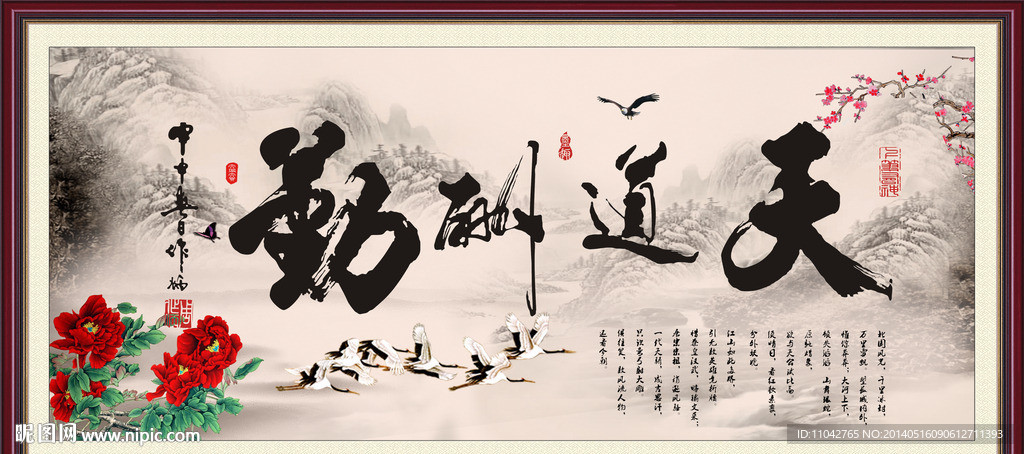 天道酬勤
北国风光，千里冰封，
万里雪飘。望长城内外，
惟馀莽莽；大河上下，
顿失滔滔。山舞银蛇，
原驰蜡象，
欲与天公试比高
须晴日，看红妆素裹，
分外妖娆
江山如此多娇，
引无数英雄竞折腰。
惜秦皇汉武，略输文采；
唐宗宋祖，稍逊风骚
一代天骄，成吉思汗，
只识弯弓射大雕
俱往矣，数风流人物，
还看今朝
昵图网 www.nipic.com
ID:11042765 NO:20140516090612711393